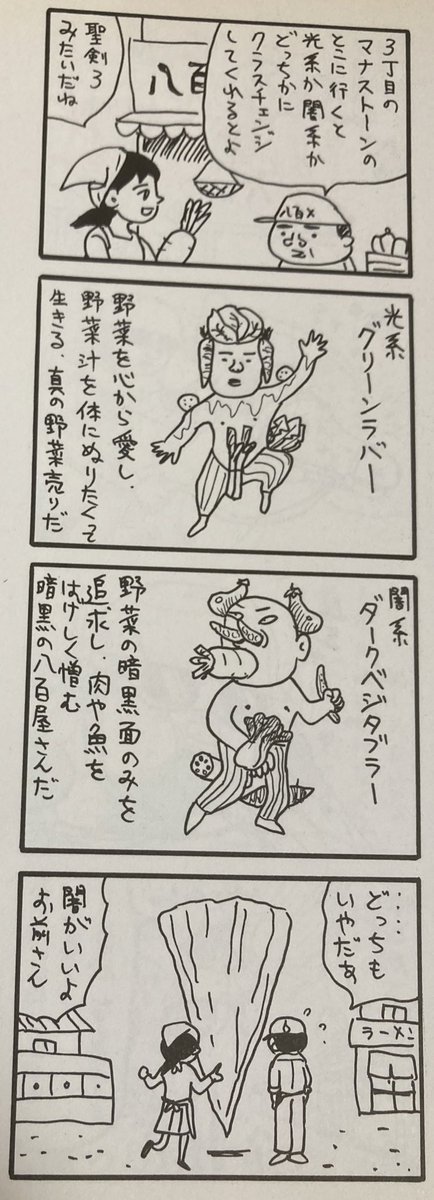 3丁目の
マナストーンの
とこに行くと
光系か闇系か
どっちかに
クラスチェンジ
してくれるとよ
聖剣3
みたいだね
八百
八百〆
光系
グリーンラバー
野菜を心から愛し、
野菜汁を体にぬりたくって
生きる、真の野菜売りだ
闇系
ダークベジタブラー
野菜の暗黒面のみを
追求し、肉や魚を
はげしく憎む
暗黒の八百屋さんだ
‥‥
どっちも
いやだな
ラーメン
闇がいいよ
お前さん